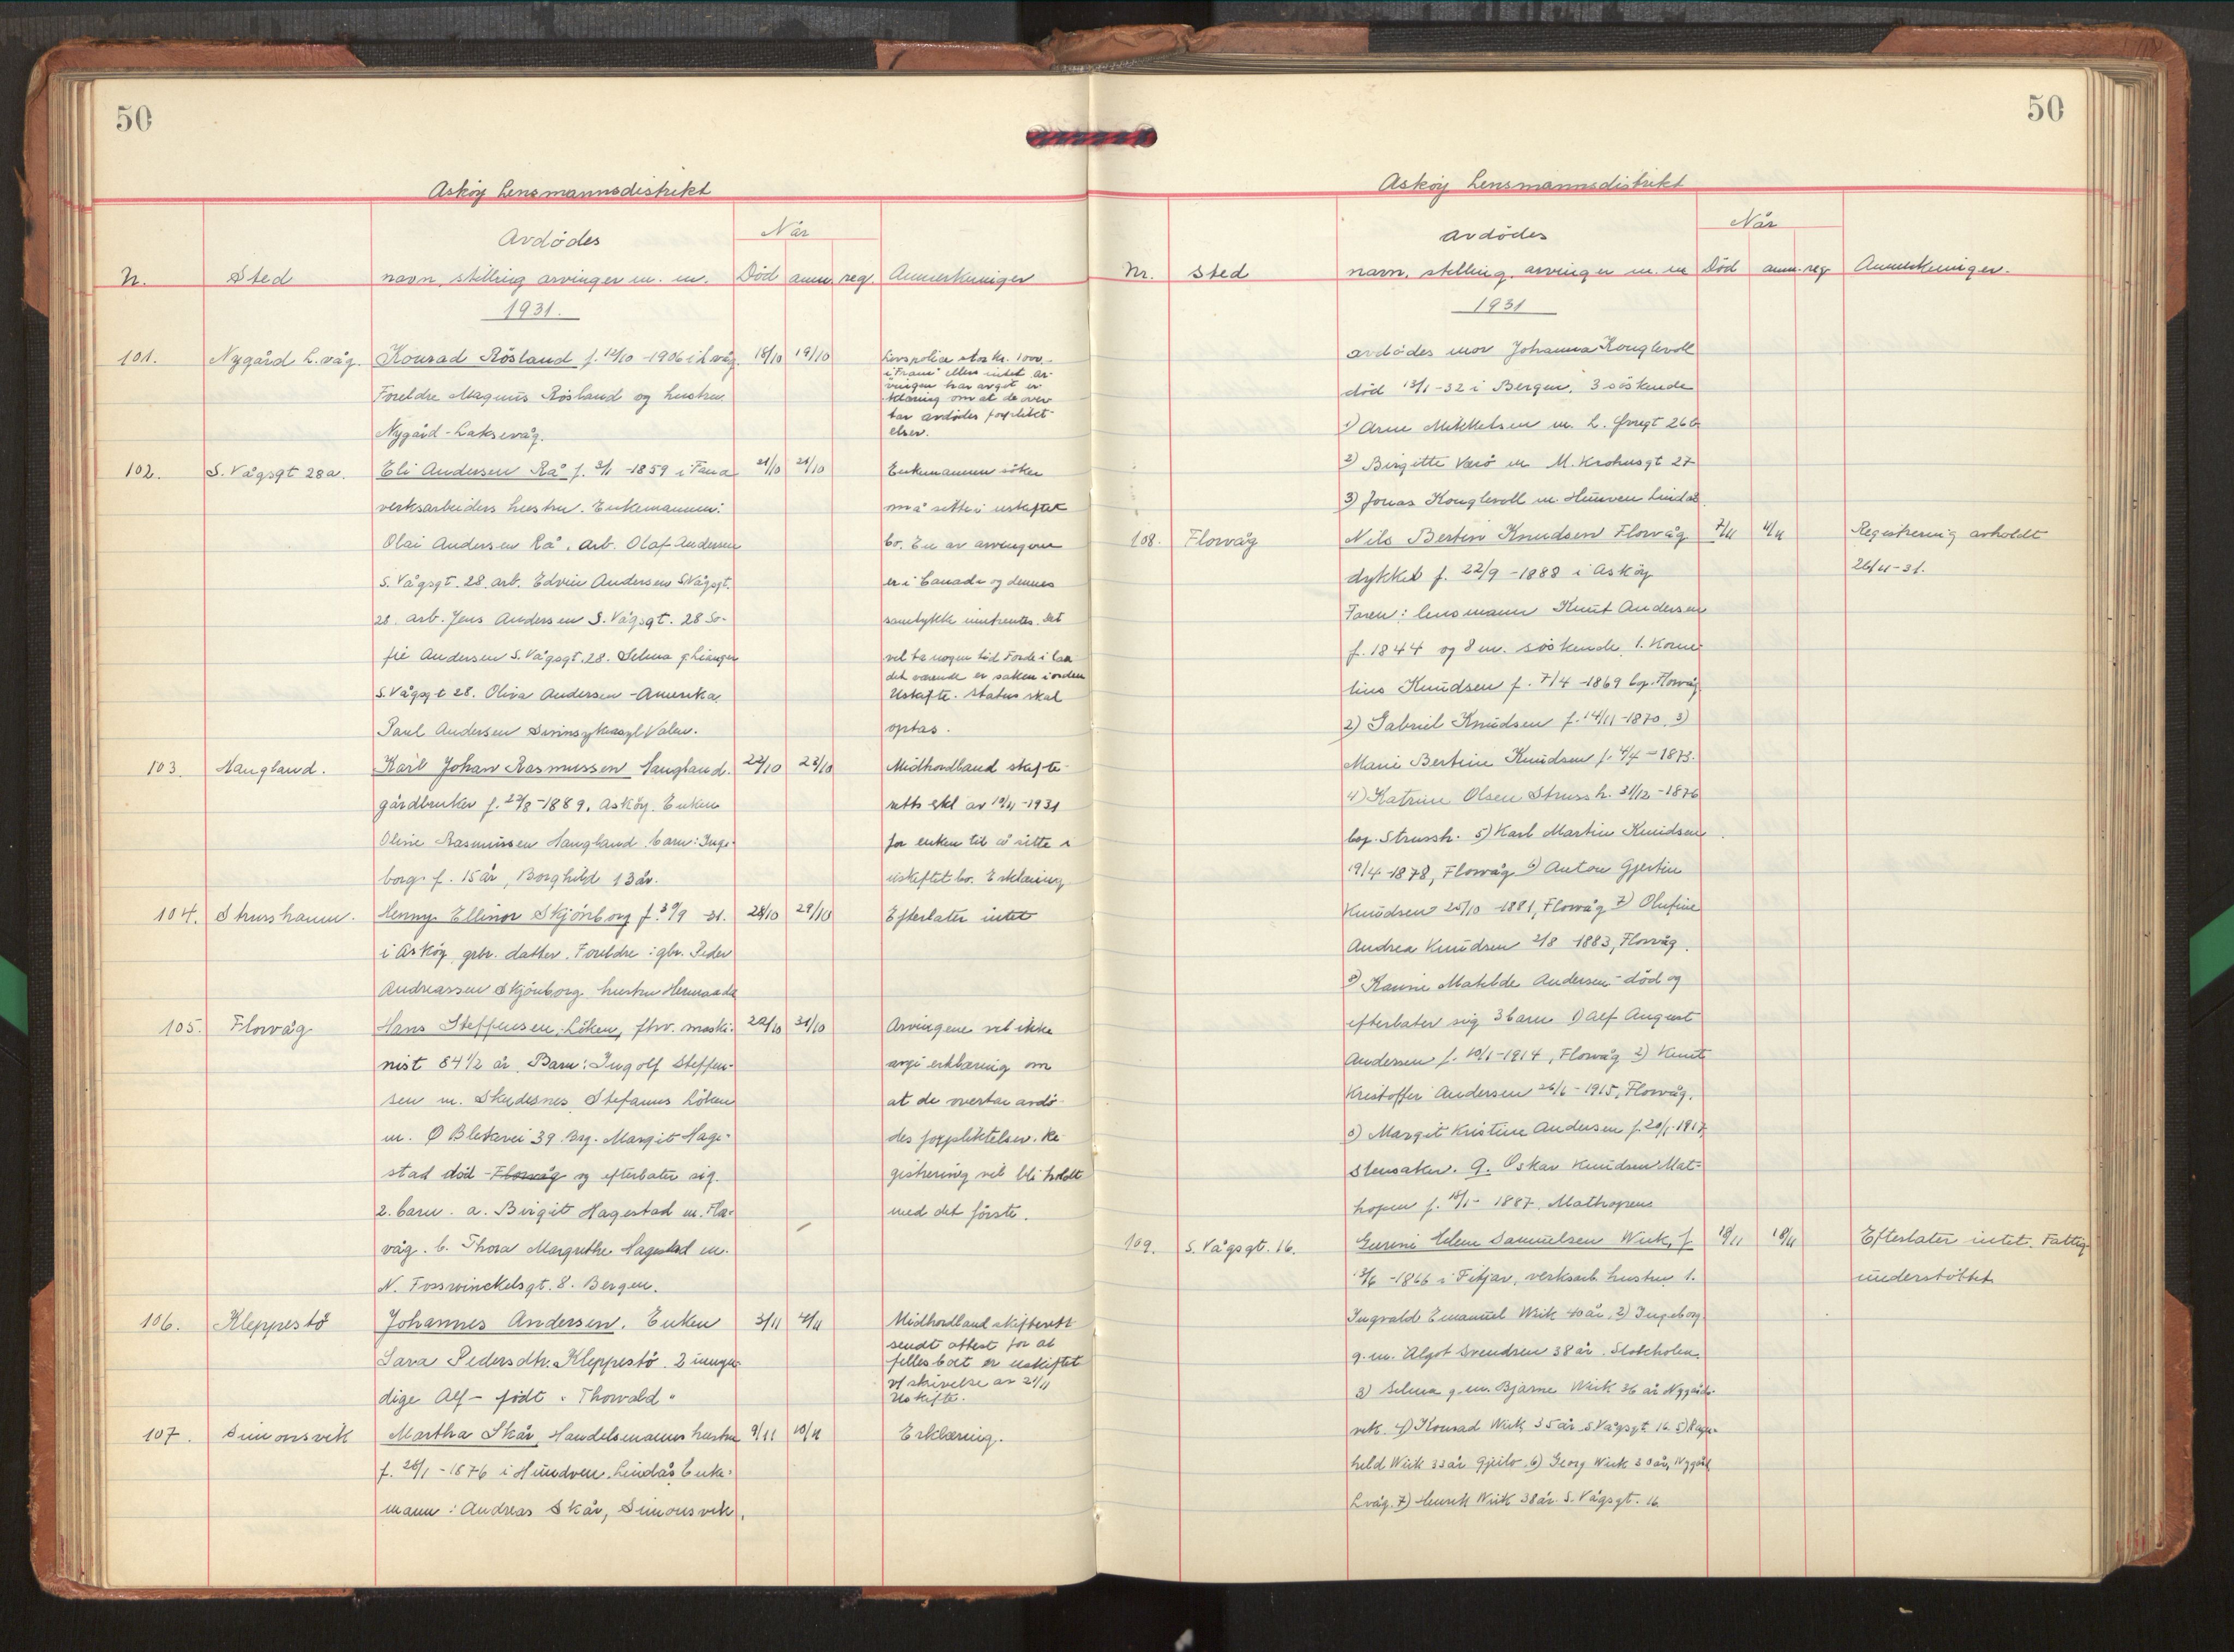 50
Askøy Lensmannsdistrikt
Avdødes
Når
Nr. Sted navn, stilling arvinger m. m. Død anm. reg. Anmerkninger
1931.
101. Nygård L.våg. Konrad Røsland f. 12/10 -1906 i L.våg. 18/10 19/10
Foreldre Magnus Røsland og hustru
Nygård - Laksevåg.
Livspolice stor kr. 1000.-
i "Fram" ellers intet. Ar-
vingen har avgit er-
klæring om at de over
tar avdødes forpliktet-
elser.
102. S. Vågsgt 28a. Eli Andersen Rå f. 3/1 -1859 i Fana 21/10 24/10 Enkemannen søker
verksarbeiders hustru. Enkemannen: må sitte i uskiftet
Olai Andersen Rå, arb. Olaf Andersen bo. En av arvingene
S. Vågsgt. 28. arb. Edvin Andersen S Vågsgt. er i Canada og dennes
28. arb. Jens Andersen S. Vågsgt. 28 So- samtykke innhentes. Det
fie Andersen S. Vågsgt. 28. Selma g. vil ta nogen tid
det værende er saken i orden
S. Vågsgt 28. Oliva Andersen - Amerika. Uskifte. Status skal
Paul Andersen Sinnsykeasyl Valen. optas.
103. Haugland. Karl Johan Rasmussen Haugland. 22/10 28/10 Midhordland skifte-
gårdbruker f. 29/8 -1889, Askøy. Enken retts skl av 19/11 -1931
Oline Rasmussen Haugland. barn: Inge- for enken til å sitte i
borg f. 15 år, Borghild 13 år. uskiftet bo. Erklæring
104. Strushamn. Henny Ellinor Skjønborg f. 30/9 -31. 28/10 29/10 Efterlater intet
i Askøy grbr. datter. Foreldre: gbr. Peder
Andreassen Skjønborg hustru
105. Florvåg Hans Steffensen Løken, fhv. maski- 22/10 31/10 Arvingene vil ikke
nist 84 1/2 år. Barn: Ingolf Steffen- avgi erklæring om
sen m. Skudesnes Stefanus Løken at de overtar avdø-
m. Ø Blekevei 39. Brg. Margit Hage- des forpliktelser. Re-
stad død - Florvåg og efterlater sig gistrering vil bli holdt
2. barn. a. Birgit Hagestad m. Flor- med det første.
våg. b. Thora Margrethe Hagestad m.
N. Fosswinckelsgt. 8. Bergen.
106. Kleppestø Johannes Andersen. Enken 3/11 4/11 Midhordland skifterett
sendt attest for at
Sara Pedersdtr. Kleppestø. 2 umyn- fellesboet er uskiftet
vf skrivelse av 21/11
dige Alf - født " Thorvald " Uskifte.
107. Simonsvik Martha Skår, Handelsmanns hustru 9/11 10/11 Erklæring.
f. 26/1 -1876 i Hundven. Lindås Enke-
mann: Andreas Skår, Simonsvik.
50
Askøy Lensmannsdistrikt
Avdødes
Når
Nr. Sted navn, stilling, arvinger m. m Død anm. reg. Anmerkninger.
1931
avdødes mor Johanna Konglevoll
død 13/1 -32 i Bergen. 3 søskende
1) Arne Mikkelsen m. L. 26 b
2) Birgitte Værø m M. Krohnsgt 27
3) Jonas Konglevoll m. Hunven Lindås
108. Florvåg Nils Bertin Knudsen Florvåg 7/11 11/11 Registrering avholdt
dykker f. 22/9 -1888 i Askøy 26/11 -31.
Faren: lensmann Knut Andersen
f. 1844 og 8 m. søskende, 1. Korne-
lius Knudsen f. 7/4 -1869 bop. Florvåg
2) Gabriel Knudsen f. 14/11 -1870. 3)
Marie Bertine Knudsen f. 4/4 -1873.
4) Katrine Olsen Strussh. 31/12 -1876
bop. Strussh. 5) Karl Martin Knudsen
19/4 -1878, Florvåg 6) Anton Gjertin
Knudsen 25/10 -1881, Florvåg 7) Olufine
Andrea Knudsen 2/8 1883, Florvåg.
8) Kanine Matilde Andersen - død og
efterlater sig 3 barn 1) Alf August
Andersen f. 10/1 -1914, Florvåg 2) Knut
Kristoffer Andersen 26/6 - 1915, Florvåg.
3) Margit Kristine Andersen f. 20/1 -1917
Stensaker. 9. Oskar Knudsen Mat-
hopen f. 18/1 - 1887. Mathopen
109. S. Vågsgt. 16. Gurine Helene Samuelsen Wiik, f. 18/11 18/11 Efterlater intet. Fattig
13/6 -1866 i Fitjar, verksarb. hustru 1. understøttet
Ingvald Emanuel Wiik 40 år, 2) Ingeborg
g. m. Algot Svendsen 38 år.
3) Selma g. m. Bjarne Wiik 36 år Nygårds-
vik. 4) Konrad Wiik 35 år S Vågsgt 16. 5) Ragn-
hild Wiik 33 år Gjeilo 6) Georg Wiik 30 år, Nygård
L.våg. 7) Henrik Wiik 38 år. S. Vågsgt. 16